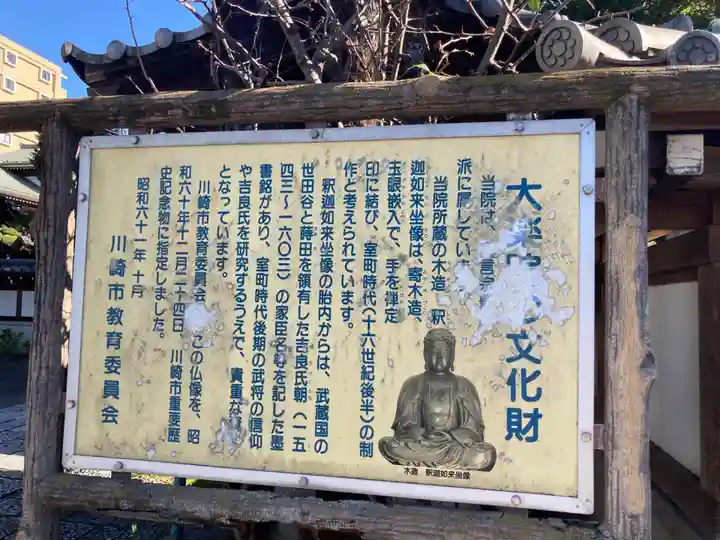 大楽 の文化財
当院は、 言
派に属してい
当院所蔵の木造 釈
迦如来坐像は、寄木造、
玉眼嵌入で、手を禅定
印に結び、室町時代(十六世紀後半)の制
作と考えられています。
釈迦如来坐像の胎内からは、武蔵国の
世田谷と蒔田を領有した吉良氏朝(一五
四三〜一六〇三)の家臣名等を記した墨
書銘があり、室町時代後期の武将の信仰
や吉良氏を研究するうえで、貴重な
となっています。
川崎市教育委員会 この仏像を、昭
和六十年十二月二十四日、川崎市重要歴
史記念物に指定しました。
昭和六十一年 十月
川崎市教育委員会
木造 釈迦如来坐像